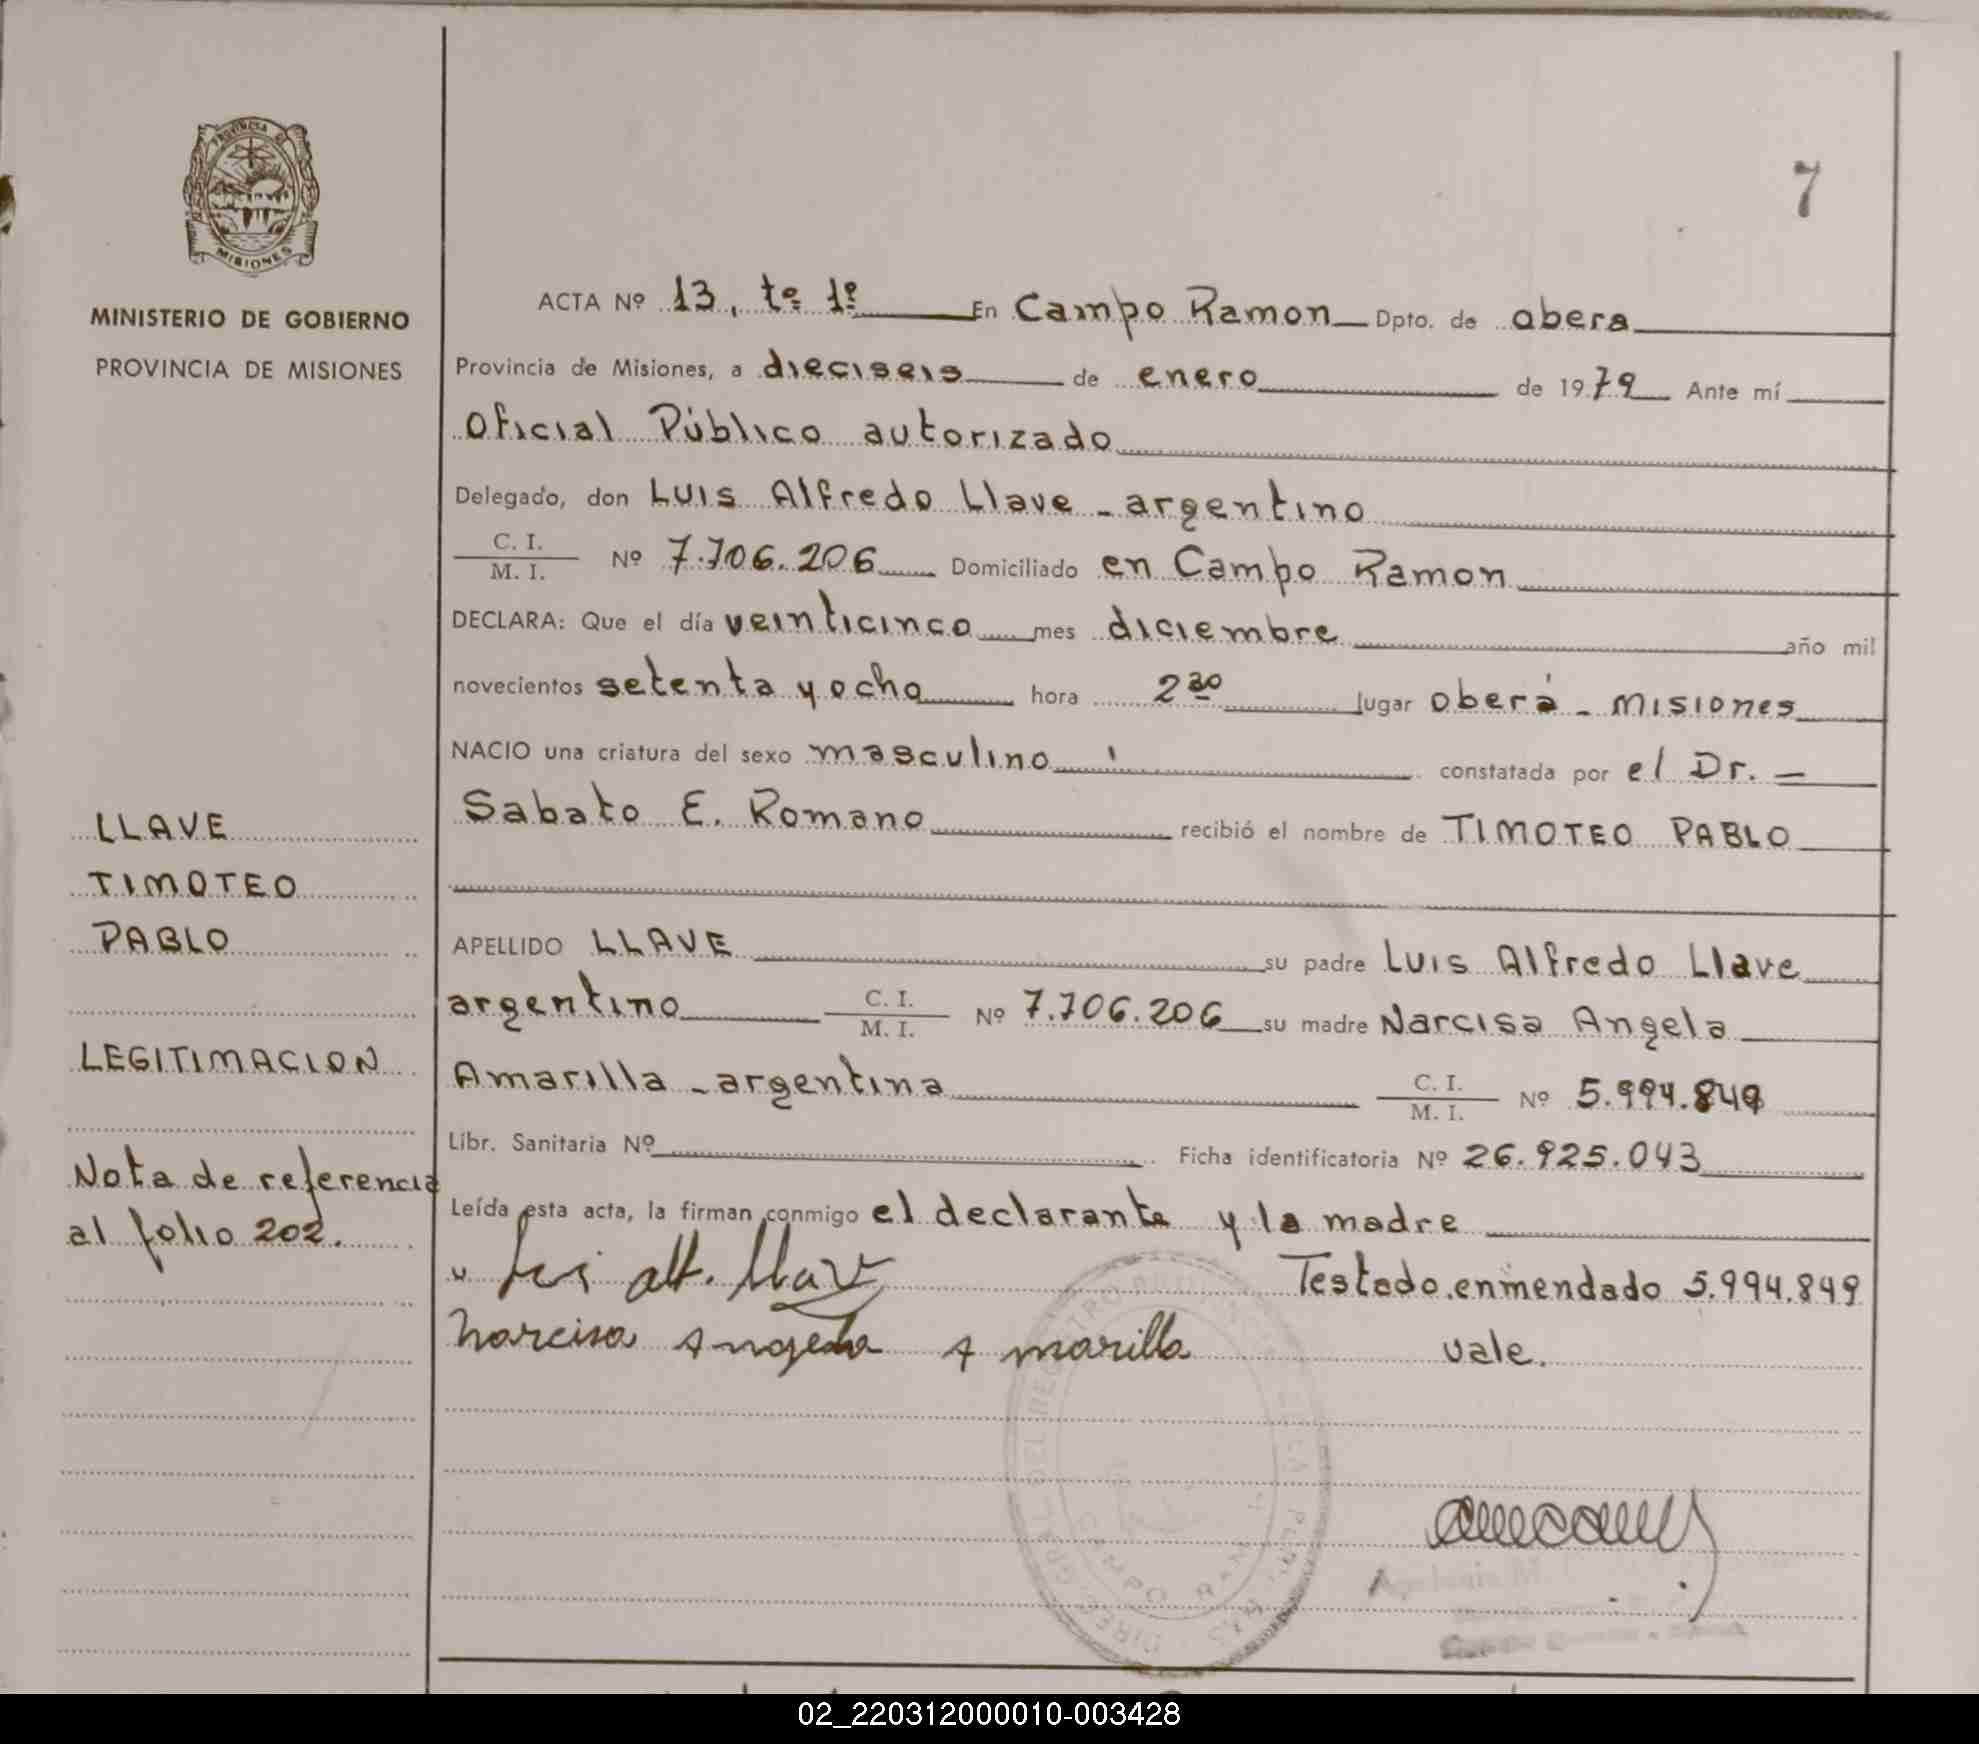 PROVINCIA DE
MISIONES
MINISTERIO DE GOBIERNO
PROVINCIA DE MISIONES
LLAVE
TIMOTEO
PABLO
LEGITIMACION
Nota de referencia
al folio 202.
7
ACTA Nº 13, tº 1º En Campo Ramon Dpto. de obera
Provincia de Misiones, a dieciseis de enero de 1979 Ante mí
Oficial Público autorizado
Delegado, don Luis Alfredo Llave - argentino
C. I. / M. I. Nº 7.706.206 Domiciliado en Campo Ramon
DECLARA: Que el día veinticinco mes diciembre año mil
novecientos setenta y ocho hora 2 30 lugar oberá - misiones
NACIO una criatura del sexo masculino constatada por el Dr. -
Sabato E. Romano recibió el nombre de TIMOTEO PABLO
APELLIDO LLAVE su padre Luis Alfredo Llave
argentino C. I. / M. I. Nº 7.706.206 su madre Narcisa Angela
Amarilla - argentina C. I. / M. I. Nº 5.994.849
Libr. Sanitaria Nº Ficha identificatoria Nº 26.925.043
Leída esta acta, la firman conmigo el declarante y la madre
Luis Alf. Llave Testado.enmendado 5.994.849
Narcisa Angela Amarilla vale.
CAMPO RAMON
02_220312000010-003428